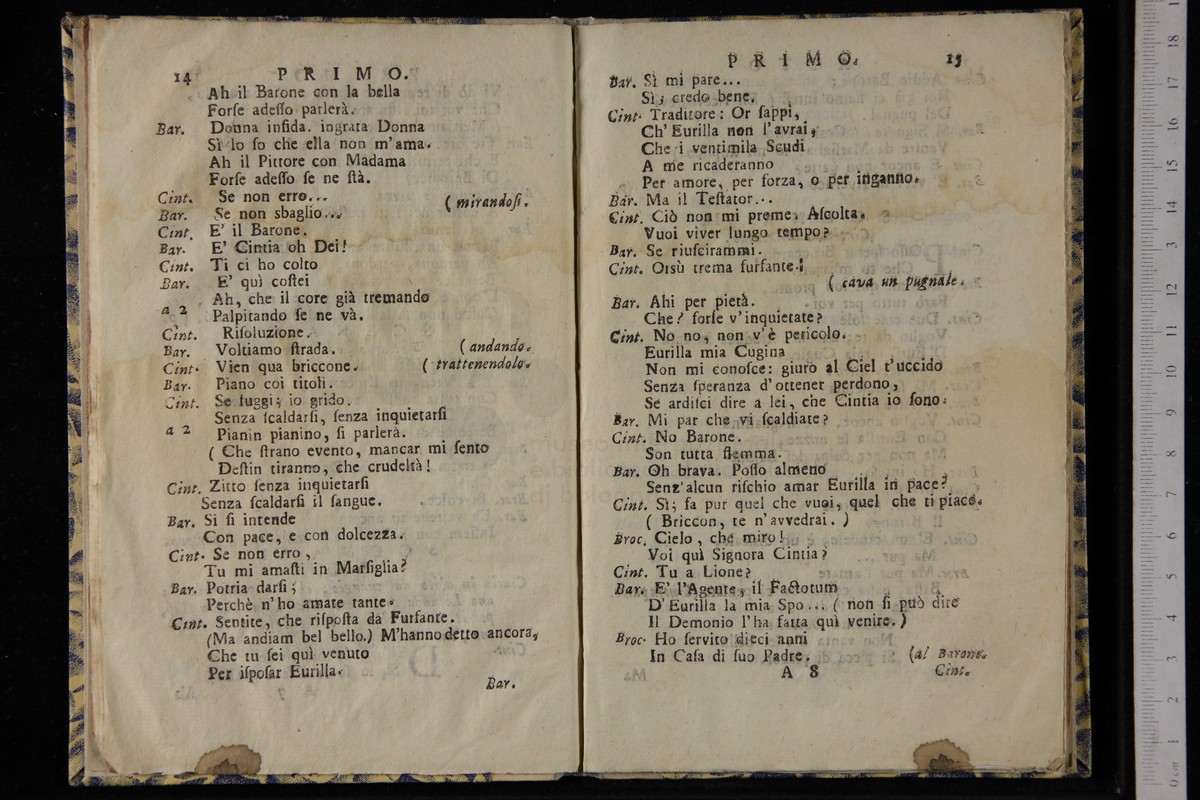 14 PRIMO.
Ah il Barone con la bella
Forſe adeſſo parlerà.
Bar. Donna infida. ingrata Donna
Sì lo ſo che ella non m'ama.
Ah il Pittore con Madama
Forſe adeſſo ſe ne ſtà.
Cint. Se non erro...
Bar. Se non sbaglio... ( mirandoſi.
Cint. E' il Barone.
Bar. E' Cintia oh Dei!
Cint. Ti ci ho colto
Bar. E' quì coſtei
Ah, che il core già tremando
a 2 Palpitando ſe ne và.
Cint. Riſoluzione.
Bar. Voltiamo ſtrada. ( andando.
Cint. Vien qua briccone. ( trattenendolo.
Bar. Piano coi titoli.
Cint. Se fuggi; io grido.
Senza ſcaldarſi, ſenza inquietarſi
a 2 Pianin pianino, ſi parlerà.
( Che ſtrano evento, mancar mi ſento
Deſtin tiranno, che crudeltà!
Cint. Zitto ſenza inquietarſi
Senza ſcaldarſi il ſangue.
Bar. Si ſi intende
Con pace, e con dolcezza.
Cint. Se non erro,
Tu mi amaſti in Marſiglia?
Bar. Potria darſi;
Perchè n'ho amate tante.
Cint. Sentite, che riſpoſta da Furfante.
(Ma andiam bel bello.) M'hanno detto ancora,
Che tu ſei quì venuto
Per iſpoſar Eurilla.
Bar.
PRIMO. 15
Bar. Sì mi pare...
Sì, credo bene.
Cint. Traditore: Or ſappi,
Ch' Eurilla non l'avrai,
Che i ventimila Scudi
A me ricaderanno
Per amore, per forza, o per inganno.
Bar. Ma il Teſtator...
Cint. Ciò non mi preme. Aſcolta.
Vuoi viver lungo tempo?
Bar. Se riuſcirammi.
Cint. Orsù trema furfante.!
( cava un pugnale.
Bar. Ahi per pietà.
Che? forſe v'inquietate?
Cint. No no, non v'è pericolo.
Eurilla mia Cugina
Non mi conoſce: giuro al Ciel t'uccido
Senza ſperanza d'ottener perdono,
Se ardiſci dire a lei, che Cintia io ſono.
Bar. Mi par che vi ſcaldiate?
Cint. No Barone.
Son tutta flemma.
Bar. Oh brava. Poſſo almeno
Senz'alcun riſchio amar Eurilla in pace?
Cint. Sì; fa pur quel che vuoi, quel che ti piace.
( Briccon, te n'avvedrai. )
Broc. Cielo, che miro!
Voi quì Signora Cintia?
Cint. Tu a Lione?
Bar. E' l'Agente, il Factotum
D'Eurilla la mia Spo... ( non ſi può dire
Il Demonio l'ha fatta quì venire.)
Broc. Ho ſervito dieci anni
In Caſa di ſuo Padre. (al Barone.
A 8 Cint.